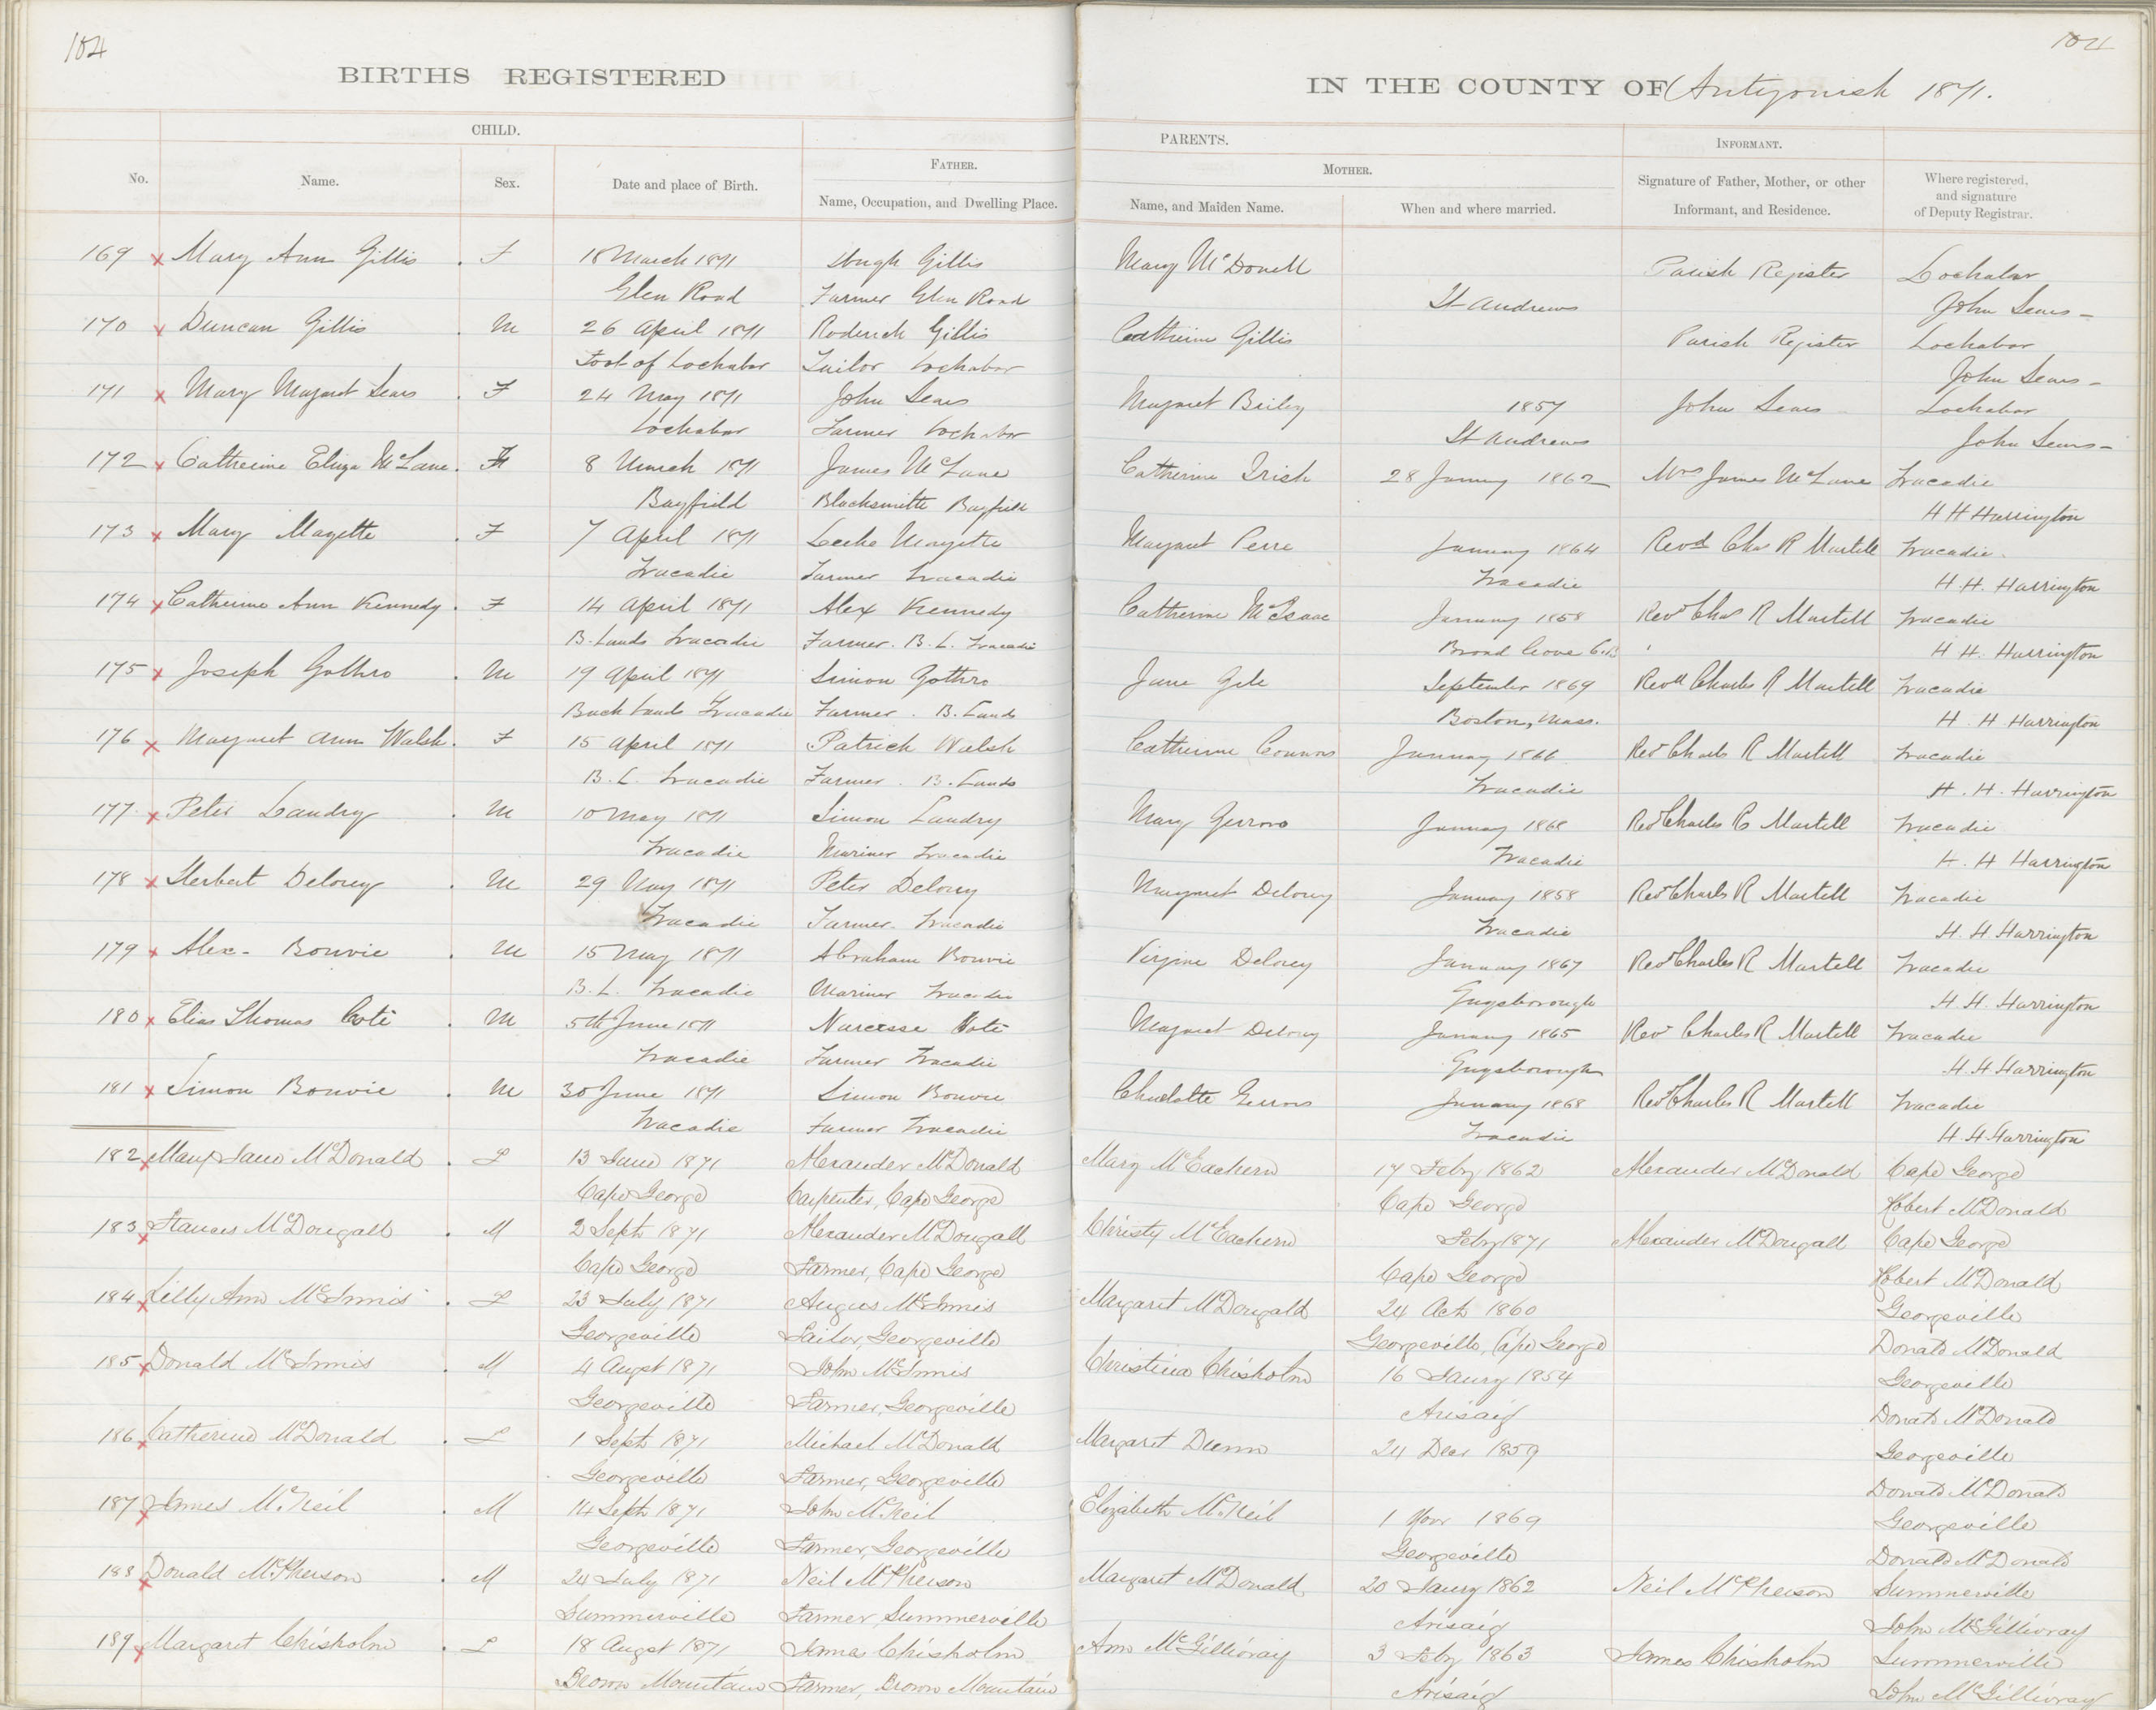 104
104
BIRTHS REGISTERED IN THE COUNTY OF Antigonish 1871.
CHILD. PARENTS. INFORMANT.
FATHER. MOTHER.
No. Name. Sex. Date and place of Birth. Name, Occupation, and Dwelling Place. Name, and Maiden Name. When and where married. Signature of Father, Mother, or other Informant, and Residence. Where registered, and signature of Deputy Registrar.
169 x Mary Ann Gillis . F 18 March 1871 Hugh Gillis Mary McDonell Parish Register Lochabar
Glen Road Farmer Glen Road St Andrews John Sears -
170 x Duncan Gillis . M 26 April 1871 Roderick Gillis Catherine Gillis Parish Register Lochabar
Foot of Lochabar Tailor Lochabar John Sears -
171 x Mary Margaret Sears . F 24 May 1871 John Sears Margaret Briley 1857 John Sears Lochabar
Lochabar Farmer Lochabar St Andrews John Sears -
172 x Catherine Eliza McLane . F 8 March 1871 James McLane Catherine Irish 28 January 1862 Mrs James McLane Tracadie
Bayfield Blacksmith Bayfield H H Harrington
173 x Mary Mayette . F 7 April 1871 Mayette Margaret Perre January 1864 Revd Chas R Martell Tracadie
Tracadie Farmer Tracadie Tracadie H. H. Harrington
174 x Catherine Ann Kennedy . F 14 April 1871 Alex Kennedy Catherine McIsaac January 1858 Revd Chas R Martell Tracadie
B. Lands Tracadie Farmer. B. L. Tracadie Broad Cove C.B H H. Harrington
175 x Joseph Gothro . M 19 April 1871 Simon Gothro Jane September 1869 Revd Charles R Martell Tracadie
Back Lands Tracadie Farmer . B. Lands Boston, Mass. H. H. Harrington
176 x Margaret Ann Walsh . F 15 April 1871 Patrick Walsh Catherine Connors January 1866 Revd Charles R Martell Tracadie
B. L. Tracadie Farmer . B. Lands Tracadie H. H. Harrington
177 x Peter Landry . M 10 May 1871 Simon Landry Mary Gerrors January 1868 Revd Charles R Martell Tracadie
Tracadie Mariner Tracadie Tracadie H. H Harrington
178 x Herbert Delorey . M 29 May 1871 Peter Delorey Margaret Delorey January 1858 Revd Charles R Martell Tracadie
Tracadie Farmer. Tracadie Tracadie H. H Harrington
179 x Alex - Bouvie . M 15 May 1871 Abraham Bouvie Virginie Delorey January 1867 Revd Charles R Martell Tracadie
B. L. Tracadie Mariner Tracadie Guysborough H. H. Harrington
180 x Elias Thomas Coté . M 5th June 1871 Narcisse Coté Margaret Delorey January 1865 Revd Charles R Martell Tracadie
Tracadie Farmer Tracadie Guysborough H. H Harrington
181 x Simon Bouvie . M 30 June 1871 Simon Bouvie Charlotte Gerrors January 1868 Revd Charles R Martell Tracadie
Tracadie Farmer Tracadie Tracadie H. H. Harrington
182 x Mary Jane McDonald . F 13 June 1871 Alexander McDonald Mary McEachern 17 Feby 1862 Alexander McDonald Cape George
Cape George Carpenter, Cape George Cape George Robert McDonald
183 x McDougall . M 2 Sept 1871 Alexander McDougall Christy McEachern Feby 1871 Alexander McDougall Cape George
Cape George Farmer, Cape George Cape George Robert McDonald
184 x Lilly Ann McInnis . F 23 July 1871 Angus McInnis Margaret McDougald 24 Oct 1860 Georgeville
Georgeville Tailor, Georgeville Georgeville, Cape George Donald McDonald
185 x Donald McInnis . M 4 Augst 1871 John McInnis Christina Chisholm 16 Jany 1854 Georgeville
Georgeville Farmer, Georgeville Arisaig Donald McDonald
186 x Catherine McDonald . F 1 Sept 1871 Michael McDonald Margaret Dunn 24 Decr 1859 Georgeville
Georgeville Farmer, Georgeville Donald McDonald
187 x James McNeil . M 14 Sept 1871 John McNeil Elizabeth McNeil 1 Novr 1869 Georgeville
Georgeville Farmer, Georgeville Georgeville Donald McDonald
188 x Donald McPherson . M 24 July 1871 Neil McPherson Margaret McDonald 20 Jany 1862 Neil McPherson Summerville
Summerville Farmer, Summerville Arisaig John McGillivray
189 x Margaret Chisholm . F 18 Augst 1871 James Chisholm Ann McGillivray 3 Feby 1863 James Chisholm Summerville
Brown Mountain Farmer, Brown Mountain Arisaig John McGillivray